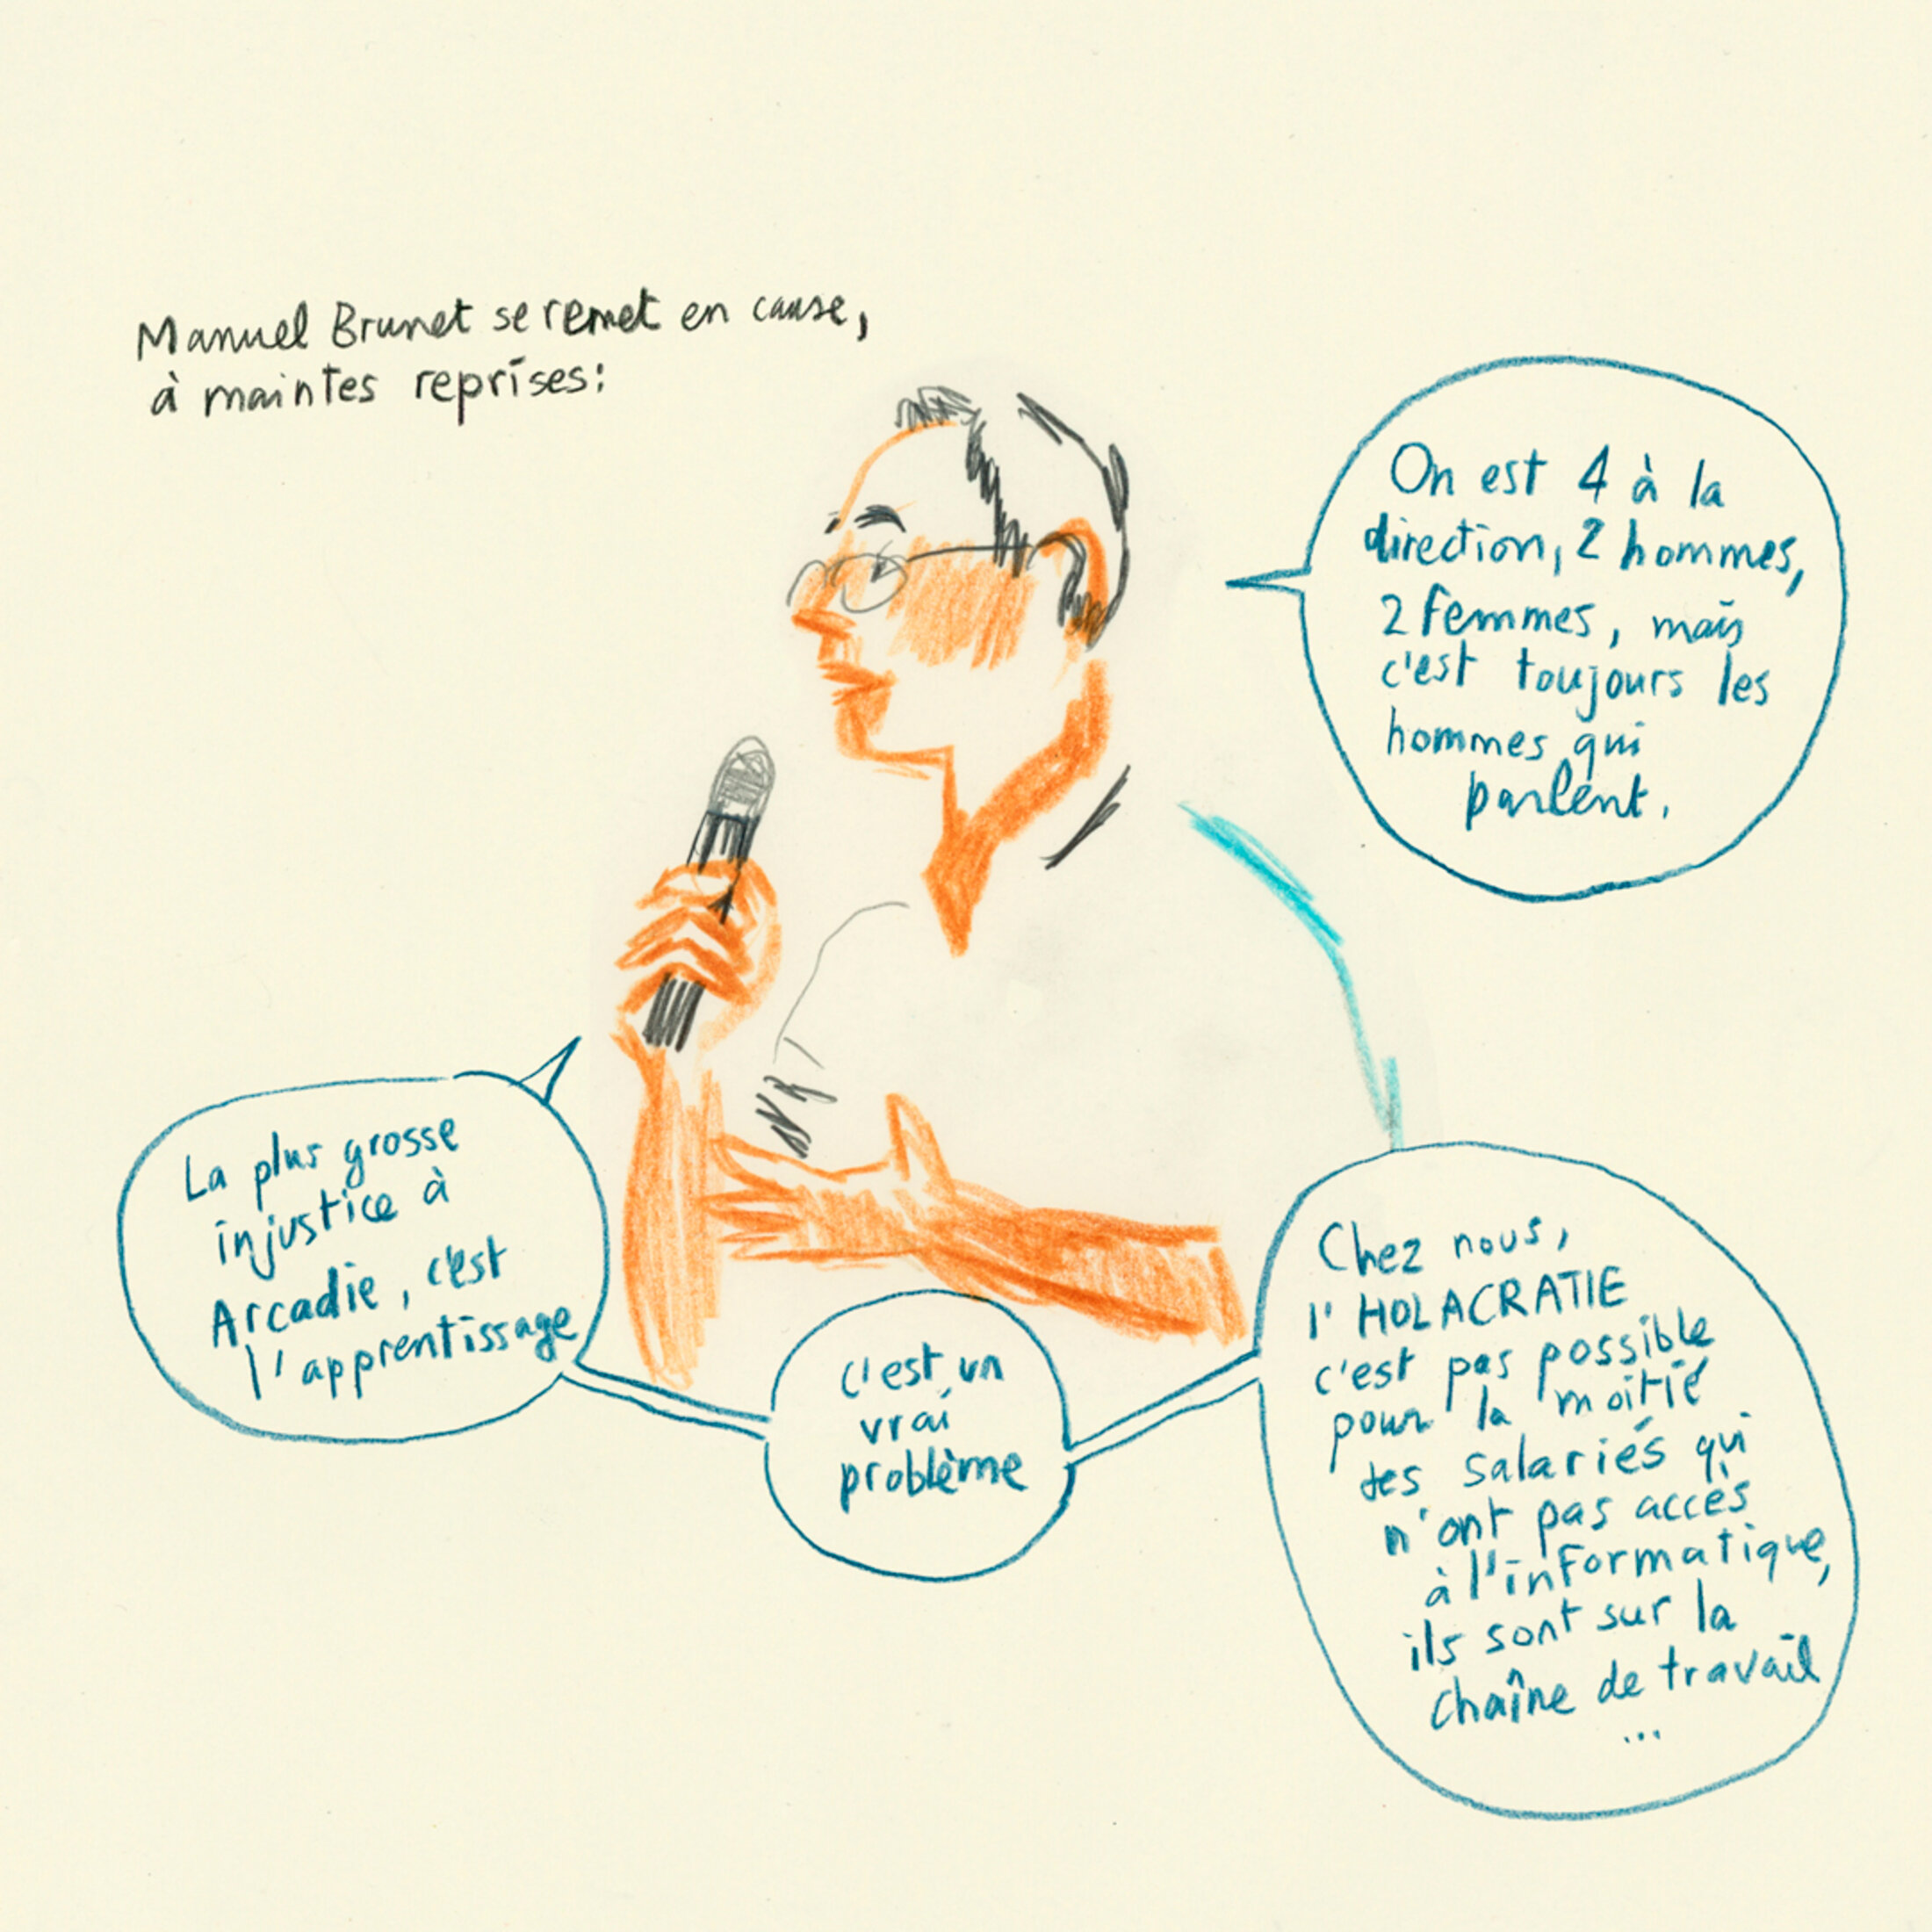 Manuel Brunet se remet en cause,
à maintes reprises:
On est 4 à la
direction, 2 hommes,
2 femmes, mais
c'est toujours les
hommes qui
parlent.
La plus grosse
injustice à
Arcadie, c'est
l'apprentissage
c'est un
vrai
problème
Chez nous,
l'HOLACRATIE
c'est pas possible
pour la moitié
des salariés qui
n'ont pas accès
à l'informatique,
ils sont sur la
chaîne de travail
...